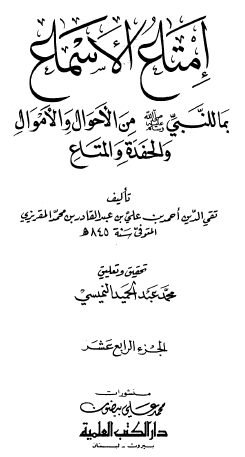 إمتاع الأسماع
بما للنبي ﷺ من الأحوال والأموال
والحفدة والمتاع
تأليف
تقي الدين أحمد بن علي بن عبد القادر بن محمد المقريزي
المتوفى سنة ٨٤٥ هـ
تحقيق وتعليق
محمد عبد الحميد النميسي
الجزء الرابع عشر
منشورات
محمد علي بيضون
دار الكتب العلمية
بيروت - لبنان